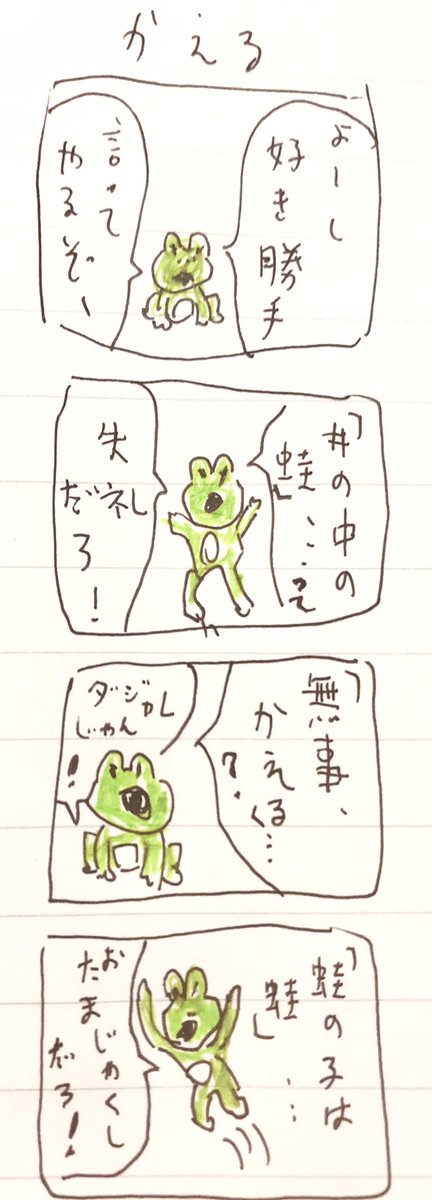 かえる
よーし
好き勝手
言って
やるぞー
「井の中の
蛙」…って
失礼
だろ！
「無事、
かえる…
？
ダジャレ
じゃん
！
「蛙の子は
蛙」…
おたまじゃくし
だろ！